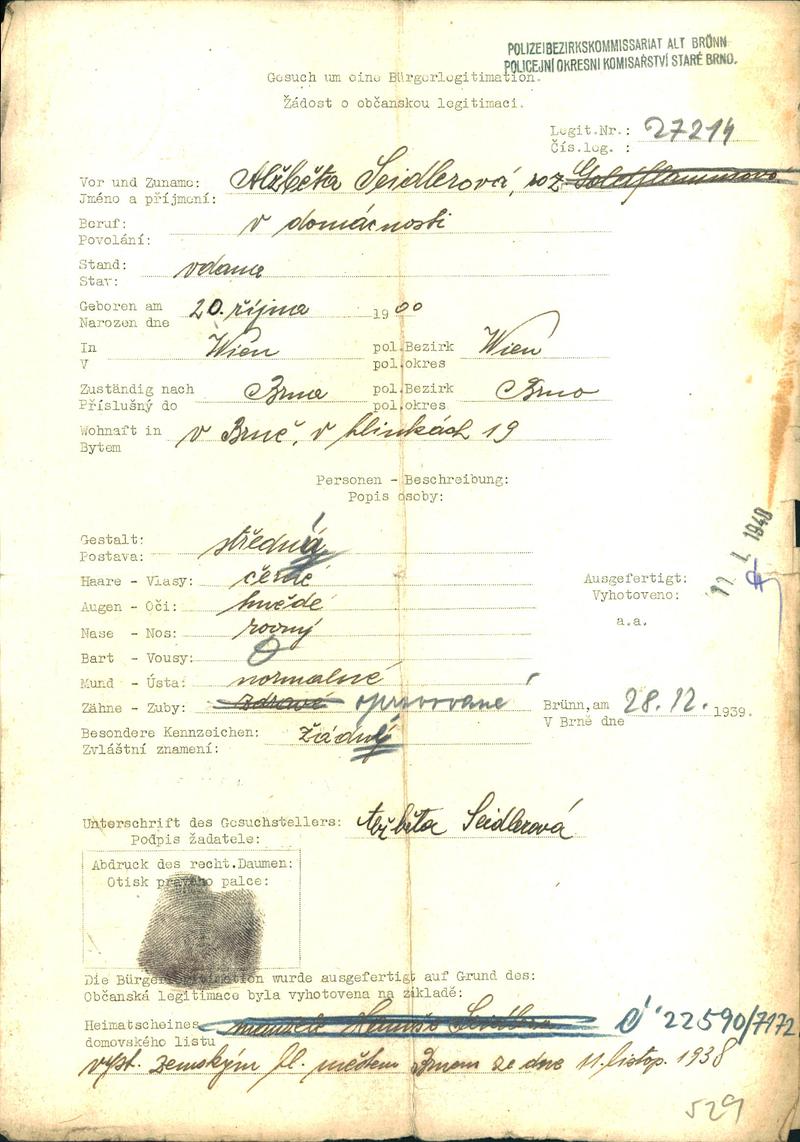 POLIZEIBEZIRKSKOMMISSARIAT ALT BRÜNN
POLICEJNÍ OKRESNÍ KOMISAŘSTVÍ STARÉ BRNO.
Gesuch um eine Bürgerlegitimation.
Žádost o občanskou legitimaci.
Legit.Nr.: 27214
Čís.leg. :
Vor und Zuname: Alžběta Seidlerová, roz. Goldflammová
Jméno a příjmení:
Beruf: v domácnosti
Povolání:
Stand: vdaná
Stav:
Geboren am 20. října 1900
Narozen dne
In Wien pol.Bezirk Wien
V pol.okres
Zuständig nach Brna pol.Bezirk Brno
Příslušný do pol.okres
Wohnaft in v Brně, v hlinkách 19
Bytem
Personen - Beschreibung:
Popis osoby:
Gestalt: středná
Postava:
Haare - Vlasy: černé
Augen - Oči: hnědé
Nase - Nos: rovný
Bart - Vousy: 0
Mund - Ústa: normalné
Zähne - Zuby: zdravé opravované
Besondere Kennzeichen: žádný
Zvláštní znamení:
Ausgefertigt: 11. 1. 1940
Vyhotoveno:
a.a.
Brünn, am 28.12. 1939.
V Brně dne
Unterschrift des Gesuchstellers: Alžběta Seidlerová
Podpis žadatele:
Abdruck des recht.Daumen:
Otisk pravého palce:
Die Bürgerlegitimation wurde ausgefertigt auf Grund des:
Občanská legitimace byla vyhotovena na základě:
Heimatscheines č 22590/7172
domovského listu
vyst. zemským hl. městem Brnem ze dne 11. listop. 1938
529